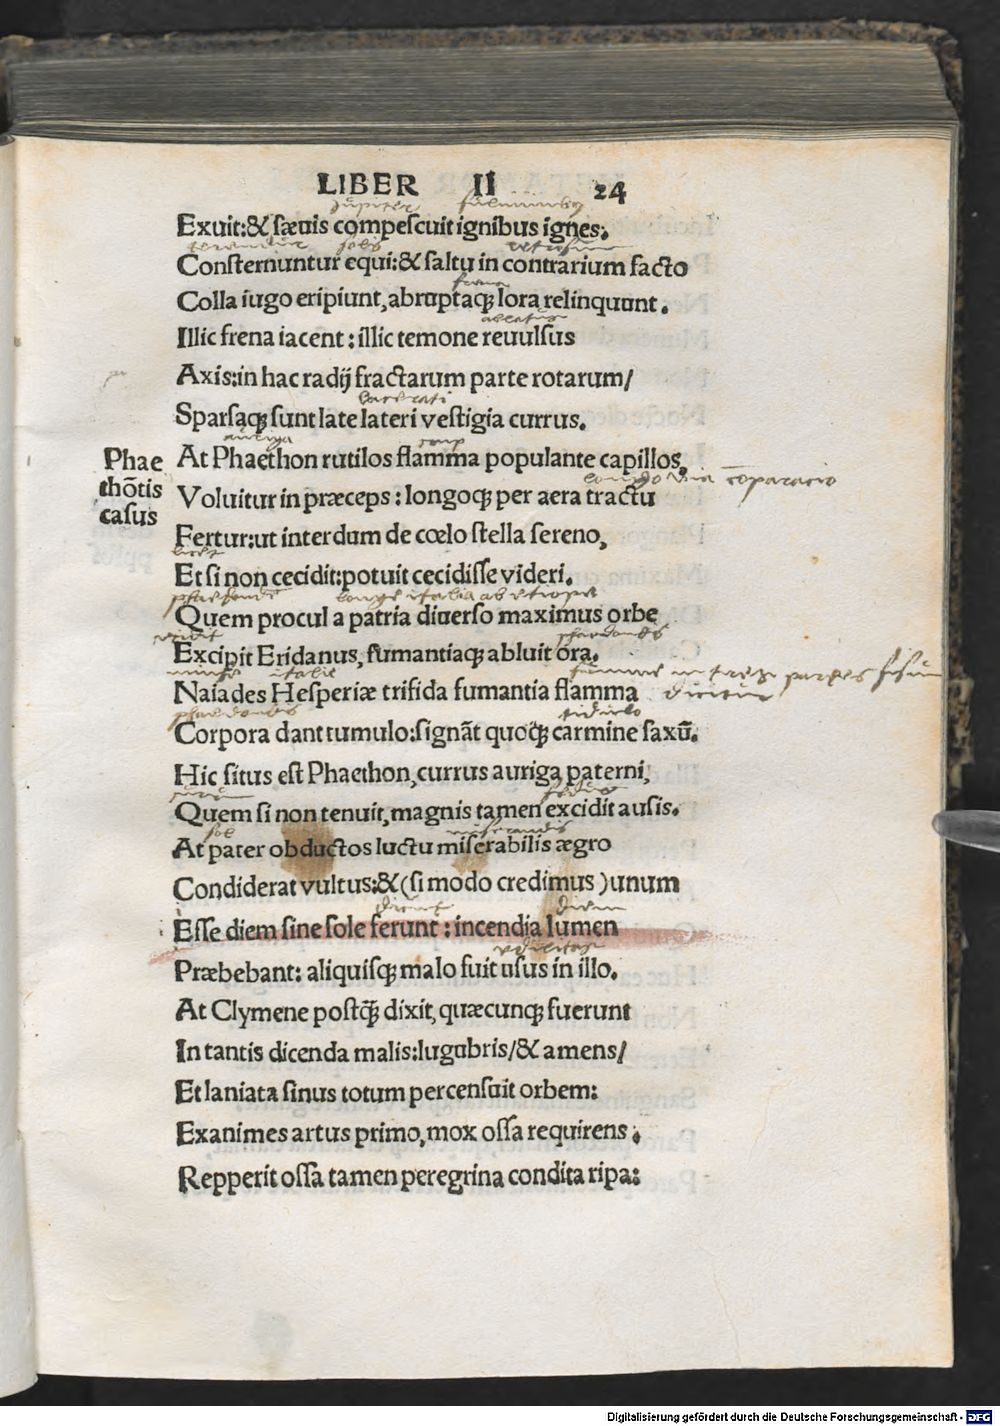 LIBER II 24
Jupiter fulminibus
Exuit:& sæuis compescuit ignibus ignes.
terrentur solis retrorsum
Consternuntur equi:& saltu in contrarium facto
frena
Colla iugo eripiunt, abruptaqꝫ lora relinquunt.
ablatus
Illic frena iacent: illic temone reuulsus
Axis:in hac radij fractarum parte rotarum/
lacerati
Sparsaqꝫ sunt late lateri vestigia currus.
auriga
At Phaethon rutilos flamma populante capillos,
Phae
thōtis
casus
longo via cōparacio
Voluitur in præceps: longoqꝫ per aera tractu
Fertur:ut interdum de cœlo stella sereno,
licet
Et si non cecidit:potuit cecidisse videri.
longe italia ab etiopia
Quem procul a patria diuerso maximus orbe
phaetontis
Excipit Eridanus, fumantiaqꝫ abluit ora.
italie
Naiades Hesperiæ trifida fumantia flamma
dicitur
phaetontis titulo
Corpora dant tumulo:signāt quoqꝫ carmine saxū.
Hic situs est Phaethon, currus auriga paterni,
currum
Quem si non tenuit, magnis tamen excidit ausis.
sol miserandis
At pater obductos luctu miserabilis ægro
Condiderat vultus:&(si modo credimus) unum
dicunt diem
Esse diem sine sole ferunt: incendia lumen
vtilitas
Præbebant: aliquisqꝫ malo fuit usus in illo.
At Clymene postq̃ꝫ dixit, quæcunqꝫ fuerunt
In tantis dicenda malis:lugubris/& amens/
Et laniata sinus totum percensuit orbem:
Exanimes artus primo, mox ossa requirens.
Repperit ossa tamen peregrina condita ripa:
Digitalisierung gefördert durch die Deutsche Forschungsgemeinschaft - DFG